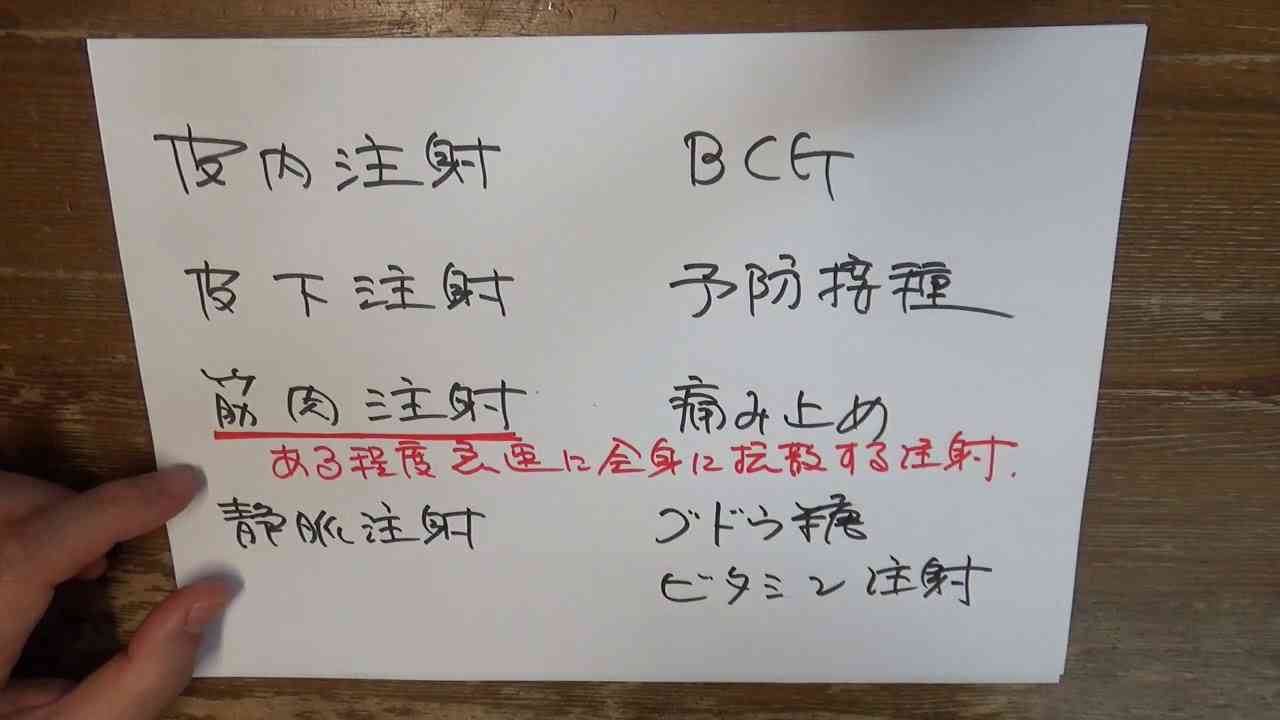 皮内注射 BCG
皮下注射 予防接種
筋肉注射 痛み止め
ある程度急速に全身に拡散する注射.
静脈注射 ブドウ糖
ビタミン注射